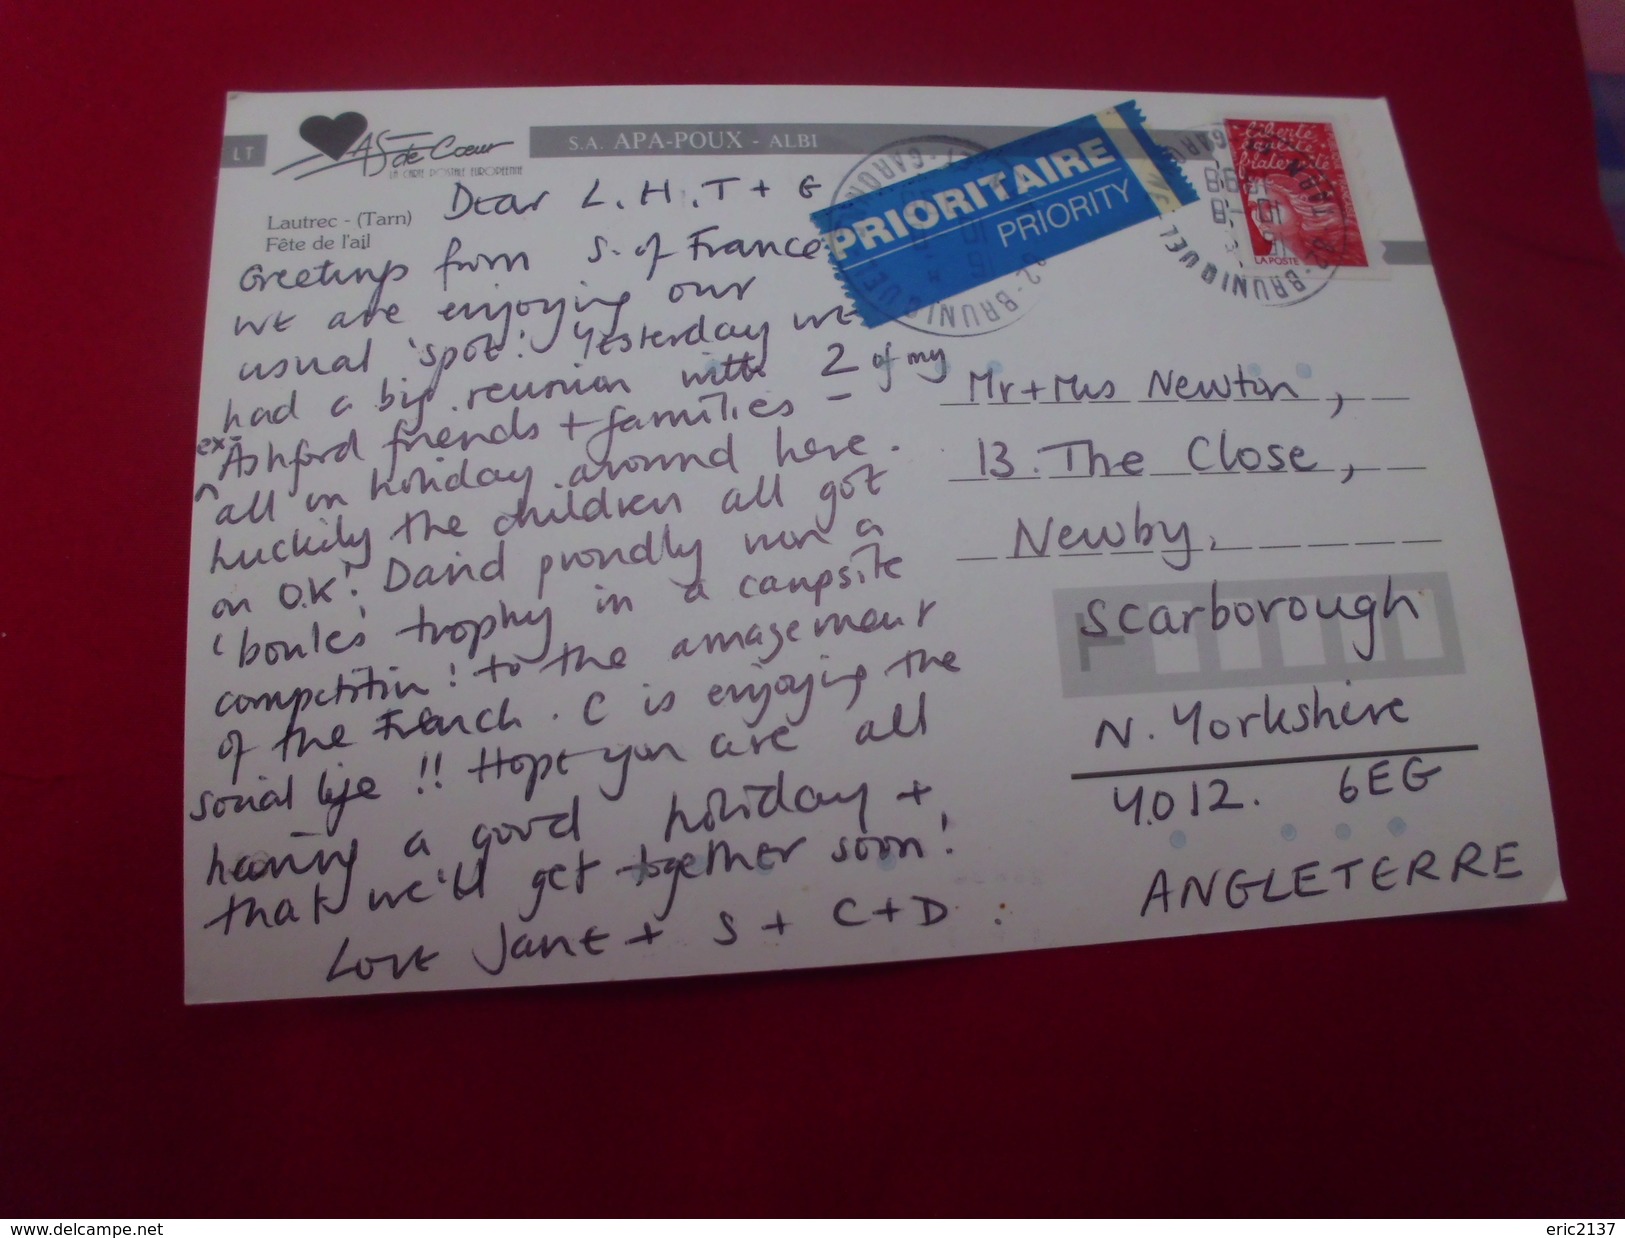 LT
AS de Cœur
LA CARTE POSTALE EUROPEENNE
S.A. APA-POUX - ALBI
Lautrec - (Tarn)
Fête de l'ail
PRIORITAIRE
PRIORITY
Liberté
égalité
fraternité
LA POSTE
82-BRUNIQUEL
Dear L.H.T + G
Greetings from S. of France.
We are enjoying our
usual 'spot'. Yesterday we
had a big reunion with 2 of my
ex-Ashford friends + families -
all on holiday around here.
Luckily the children all got
on O.K! David proudly won a
'boules' trophy in a campsite
competition! to the amazement
of the French. C is enjoying the
social life!! Hope you are all
having a good holiday +
that we'll get together soon!
Love Jane + S + C + D.
Mr + Mrs Newton,
13. The Close,
Newby,
Scarborough
N. Yorkshire
YO12. 6EG
ANGLETERRE
delcampe.net
eric2137